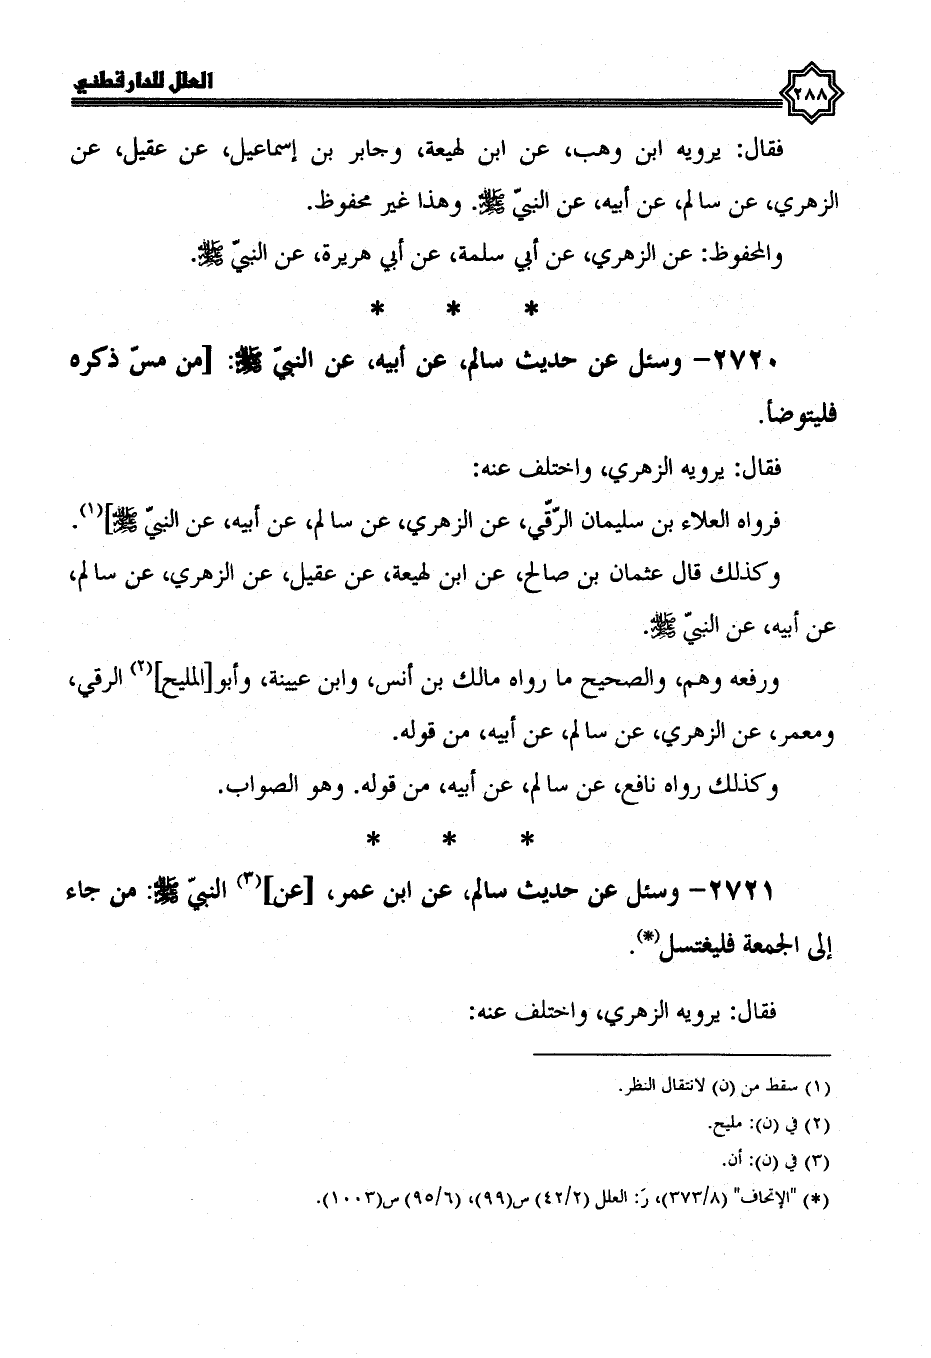 العلل للدارقطني
٢٨٨
فقال: يرويه ابن وهب، عن ابن لهيعة، وجابر بن إسماعيل، عن عقيل، عن
الزهري، عن سالم، عن أبيه، عن النبيّ ﷺ. وهذا غير محفوظ.
والمحفوظ: عن الزهري، عن أبي سلمة، عن أبي هريرة، عن النبيّ ﷺ.
* * *
٢٧٢٠- وسئل عن حديث سالم، عن أبيه، عن النبيّ ﷺ: [من مسّ ذكره
فليتوضأ.
فقال: يرويه الزهري، واختلف عنه:
فرواه العلاء بن سليمان الرّقّي، عن الزهري، عن سالم، عن أبيه، عن النبيّ ﷺ](١).
وكذلك قال عثمان بن صالح، عن ابن لهيعة، عن عقيل، عن الزهري، عن سالم،
عن أبيه، عن النبيّ ﷺ.
ورفعه وهم، والصحيح ما رواه مالك بن أنس، وابن عيينة، وأبو[المليح](٢) الرقي،
ومعمر، عن الزهري، عن سالم، عن أبيه، من قوله.
وكذلك رواه نافع، عن سالم، عن أبيه، من قوله. وهو الصواب.
* * *
٢٧٢١- وسئل عن حديث سالم، عن ابن عمر، [عن](٣) النبيّ ﷺ: من جاء
إلى الجمعة فليغتسل(*).
فقال: يرويه الزهري، واختلف عنه:
(١) سقط من (ن) لانتقال النظر.
(٢) في (ن): مليح.
(٣) في (ن): أن.
(*) "الإتحاف" (٣٧٣/٨)، رَ: العلل (٤٢/٢) س(٩٩)، (٩٥/٦) س(١٠٠٣).